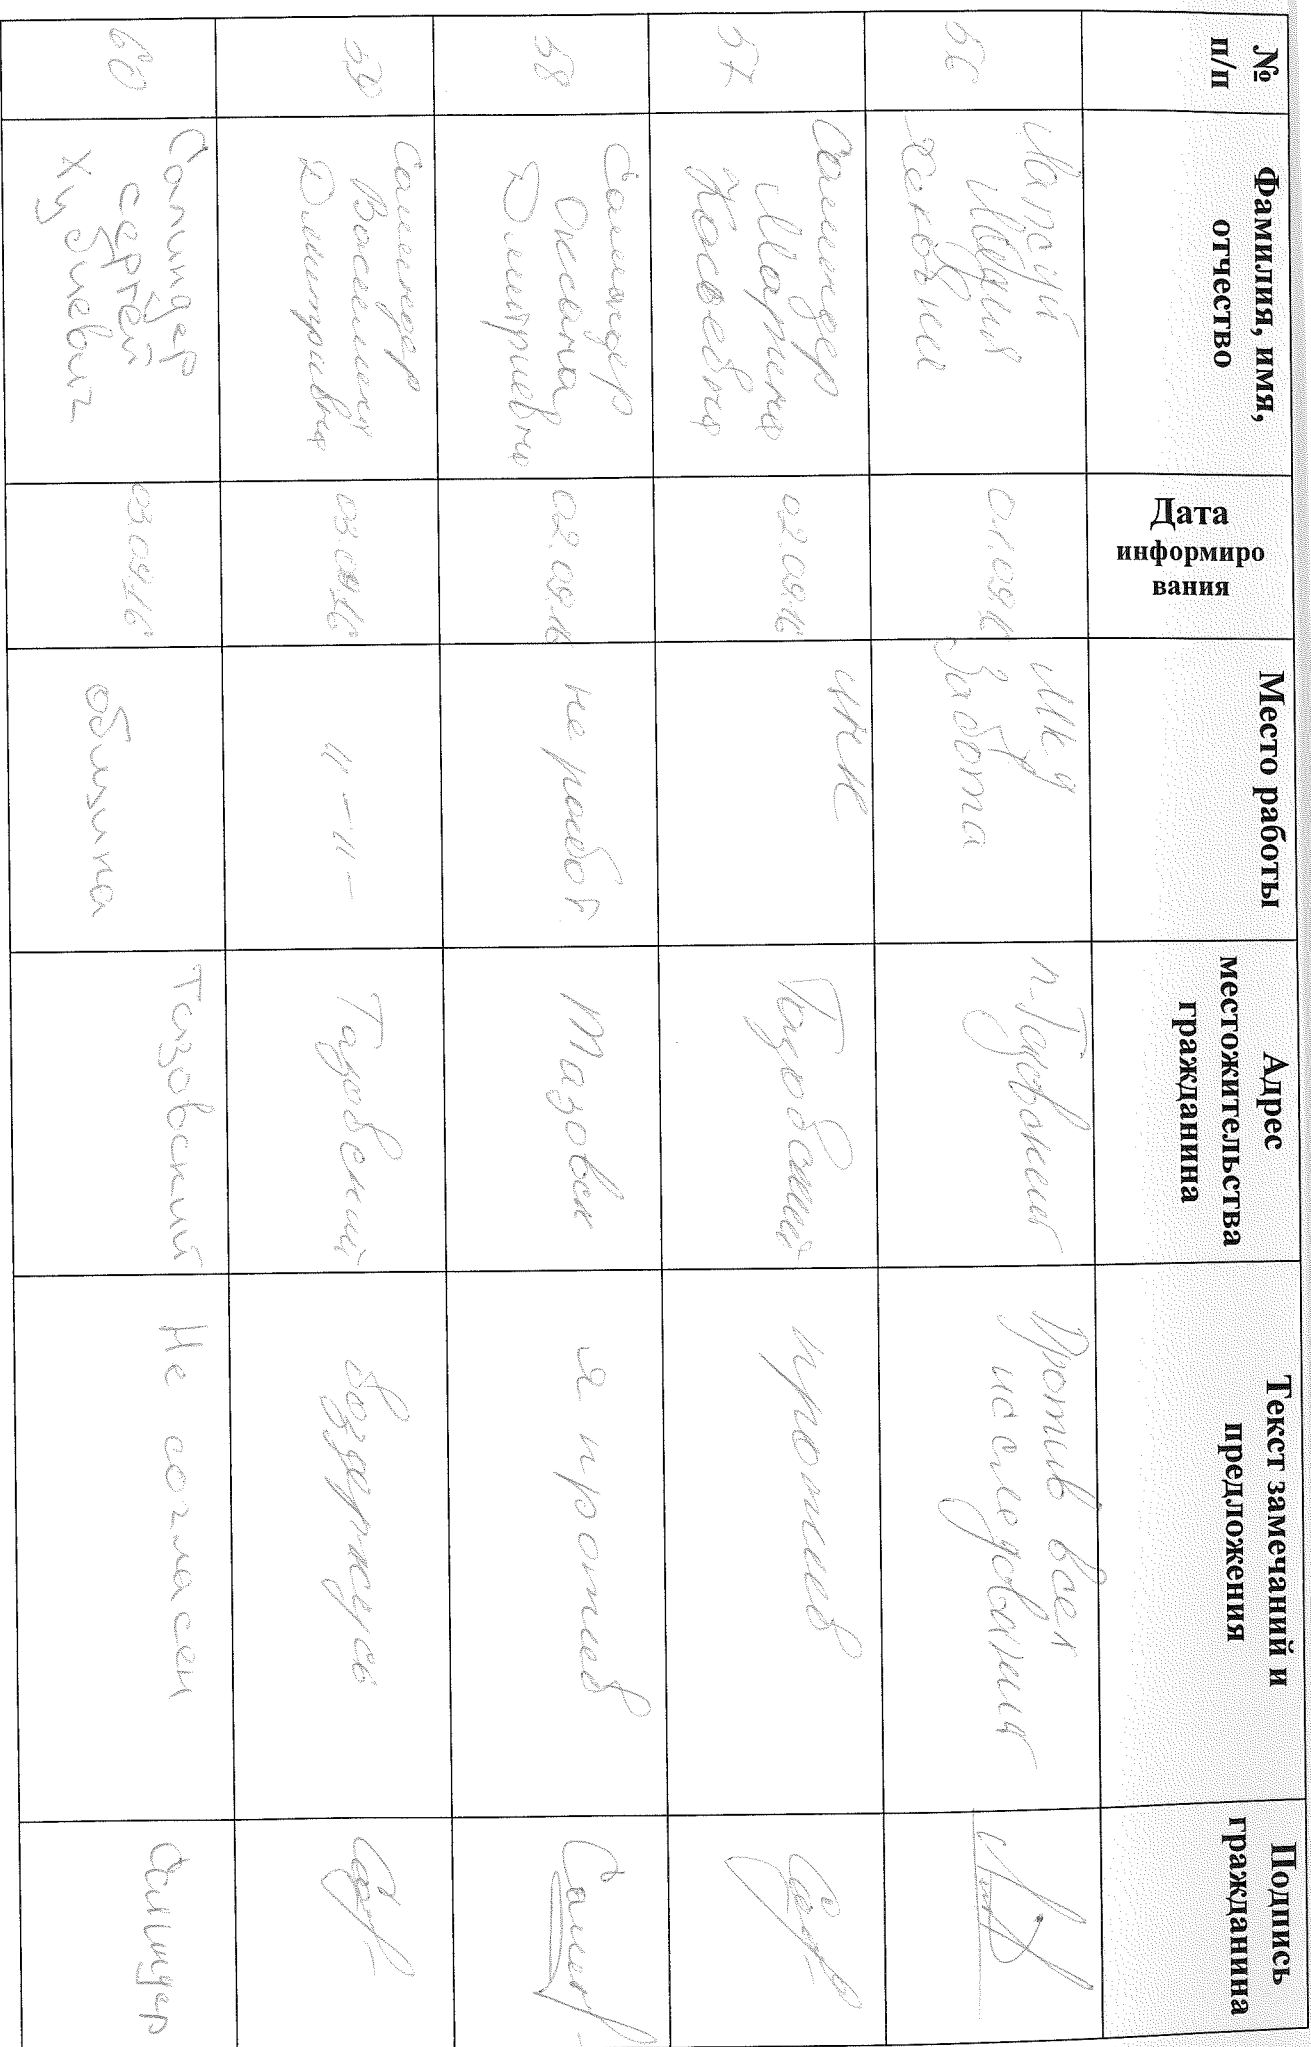 №
п/п
Фамилия, имя,
отчество
Дата
информиро
вания
Место работы
Адрес
местожительства
гражданина
Текст замечаний и
предложения
Подпись
гражданина
56
01.09.16
Забота
п. Тазовский
Против всех
исследования
57
Салиндер
Марина
02.09.16
Тазовский
против
58
Салиндер
Оксана
Дмитриевна
02.09.16
не работ.
Тазовск
я против
59
Салиндер
Василина
Дмитриевна
03.09.16
" - " -
Тазовский
воздержусь
60
Салиндер
Сергей
Хубиевич
03.09.16
община
Тазовский
Не согласен
Салиндер